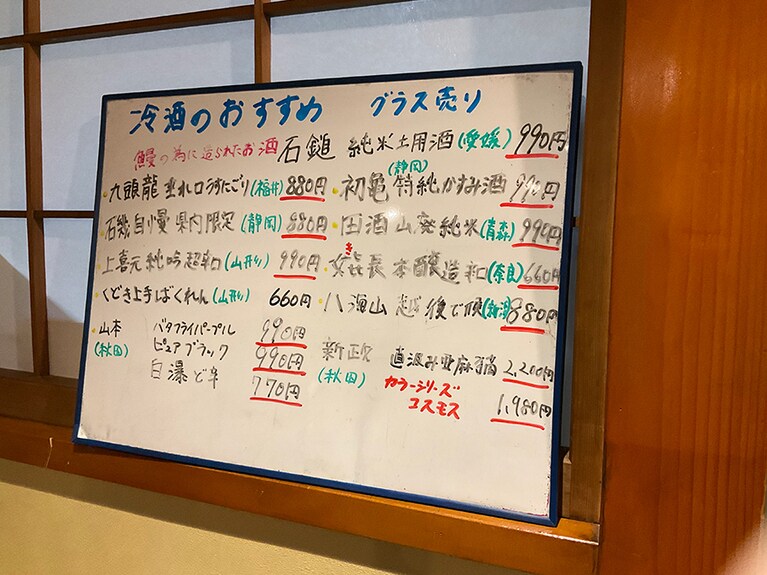 冷酒のおすすめ グラス売り
鰻の為に造られたお酒 石鎚 純米土用酒 (愛媛) 990円
九頭龍 垂れ口うすにごり (福井) 880円
初亀 特純かすみ酒 (静岡) 990円
石磯自慢 県内限定 (静岡) 880円
田酒 山廃純米 (青森) 990円
上喜元 純吟超辛口 (山形) 990円
き
長 本醸造 (奈良) 660円
くどき上手ばくれん (山形) 660円
八海山 越後で候 (新潟) 880円
山本 バタフライパープル 990円
(秋田) ピュアブラック 990円
白瀑ど辛 770円
新政 直汲み亜麻猫 2,200円
(秋田) カラーシリーズ
コスモス 1,980円